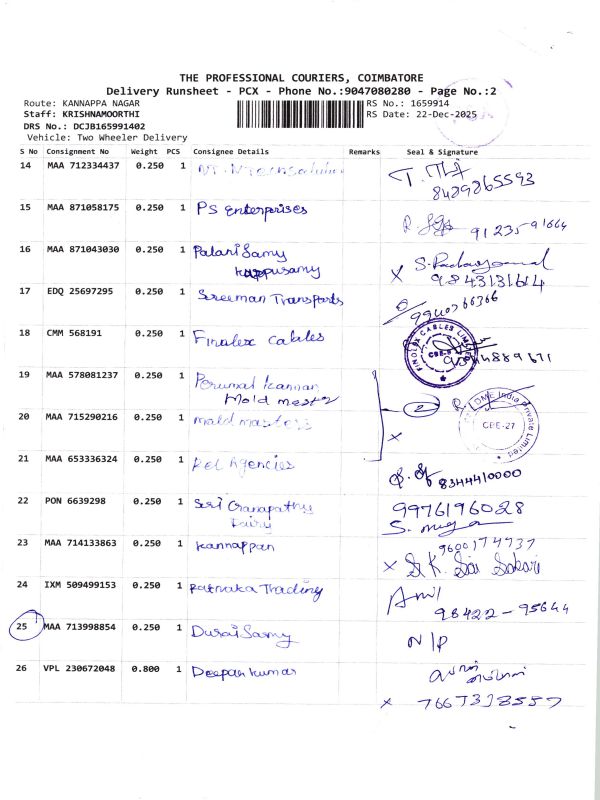 THE PROFESSIONAL COURIERS, COIMBATORE
Delivery Runsheet - PCX - Phone No.:9047080280 - Page No.:2
Route: KANNAPPA NAGAR
Staff: KRISHNAMOORTHI
DRS No.: DCJB165991402
Vehicle: Two Wheeler Delivery
RS No.: 1659914
RS Date: 22-Dec-2025
S No Consignment No Weight PCS Consignee Details Remarks Seal & Signature
14 MAA 712334437 0.250 1
8489865593
15 MAA 871058175 0.250 1 PS Enterprises
91235 91664
16 MAA 871043030 0.250 1 PalaniSamy
Kuppusamy
X
9843131614
17 EDQ 25697295 0.250 1 Sreeman Transports
18 CMM 568191 0.250 1 Finolex Cables
FINOLEX CABLES LIMITED
CBE-
19 MAA 578081237 0.250 1 Perumal Kannan
Mold master
2
20 MAA 715290216 0.250 1 mold masters
X
India Private Limited
CBE-27
21 MAA 653336324 0.250 1 Rel Agencies
8344410000
22 PON 6639298 0.250 1 Sri Ganapathy
Dairy
9976196028
23 MAA 714133863 0.250 1 Kannappan
9600174737
X K. Sai
24 IXM 509499153 0.250 1 Ratnaka Trading
Anil
98422-95644
25 MAA 713998854 0.250 1 DuraiSamy
N/P
26 VPL 230672048 0.800 1 Deepan kumar
X